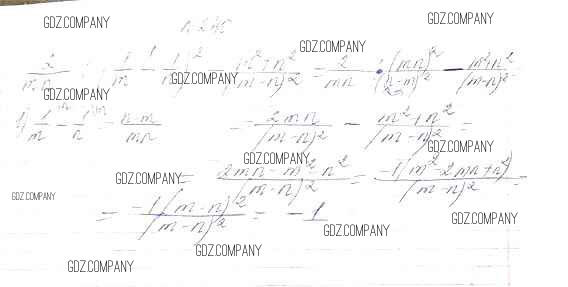 GDZ.COMPANY
GDZ.COMPANY
GDZ.COMPANY
2/mn : (1/m - 1/n)^2 - (m^2+n^2)/(m-n)^2 = 2/mn · (mn)^2/(n-m)^2 - (m^2+n^2)/(m-n)^2 =
GDZ.COMPANY
GDZ.COMPANY
1) 1/m - 1/n = (n-m)/mn = 2mn/(m-n)^2 - (m^2+n^2)/(m-n)^2 =
GDZ.COMPANY
GDZ.COMPANY
GDZ.COMPANY
= (2mn-m^2-n^2)/(m-n)^2 = -1(m^2-2mn+n^2)/(m-n)^2 =
GDZ.COMPANY
= -1(m-n)^2/(m-n)^2 = -1
GDZ.COMPANY
GDZ.COMPANY
GDZ.COMPANY
GDZ.COMPANY